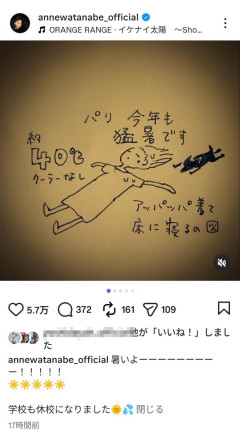 annewatanabe_official
ORANGE RANGE・イケナイ太陽　〜Sho...
パリ 今年も
猛暑です
約
40℃
クーラーなし
アッパッパ着て
床に寝るの図
5.7万 372 161 109
他が「いいね！」しまし
た
annewatanabe_official 暑いよーーーーーーーー
ー！！！！！
学校も休校になりました 閉じる
17時間前